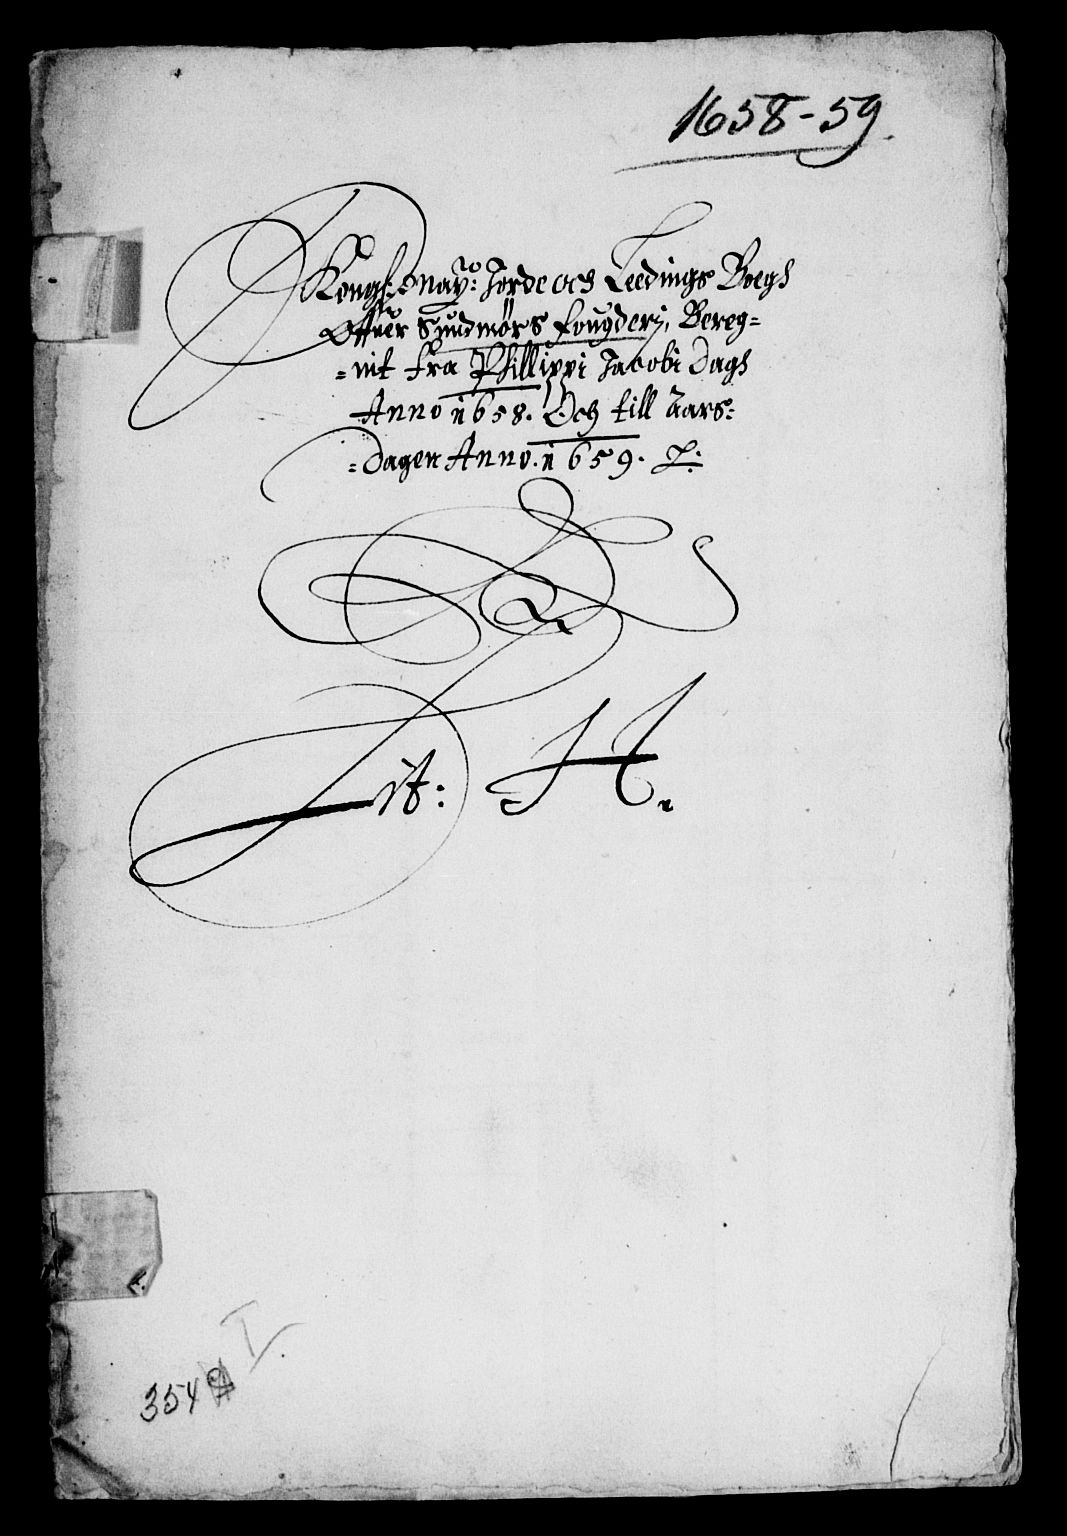 1658-59.
Kongl: Mayꝫ: Jorde och Leedings Boegh
Offuer Sundmörs fougderj, Bereg=
=nit fra Phillippi Jacobi Dagh
Anno 1658. Och till Aars=
=Dagen Anno. 1659.
Lit: H.
I.
354